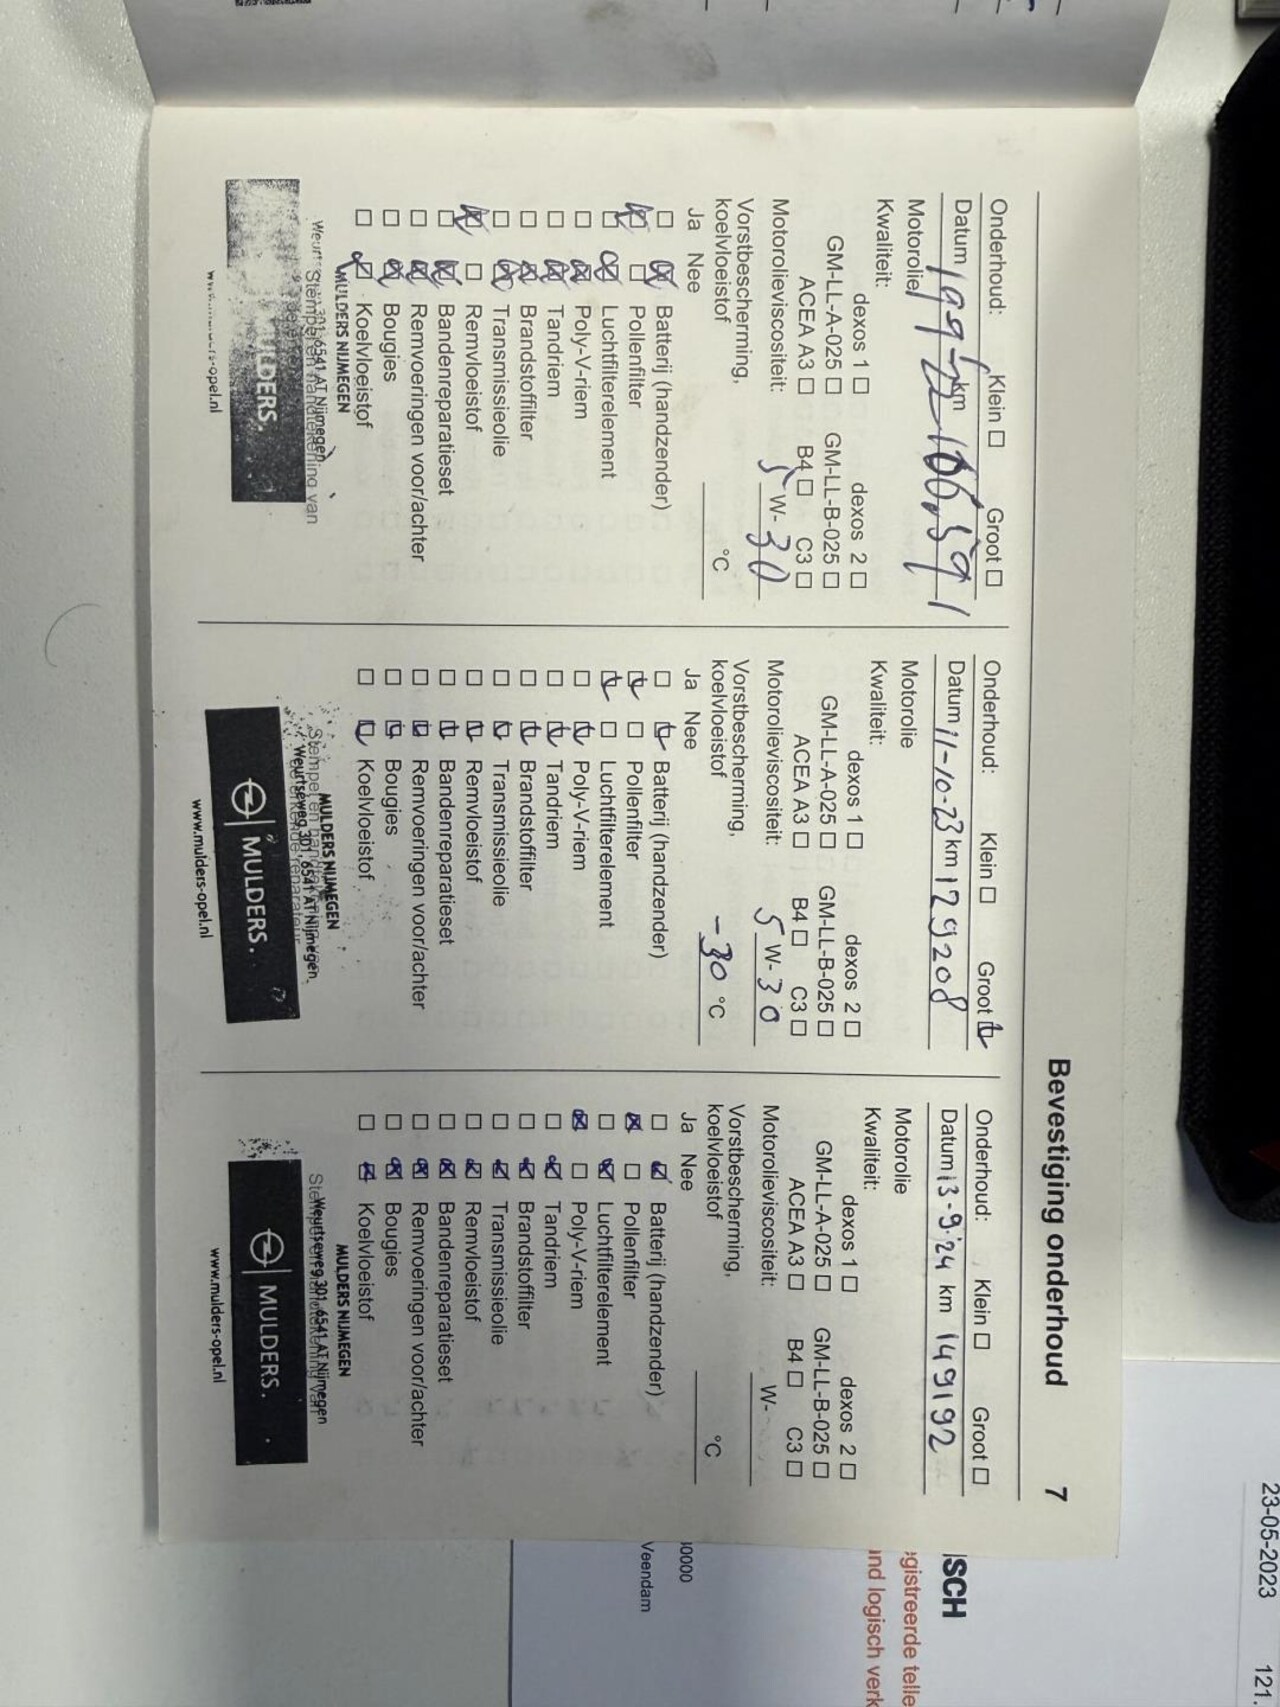 Bevestiging onderhoud 7
Onderhoud: Klein ☐ Groot ☐
Datum km 106.591
Motorolie
Kwaliteit:
dexos 1 ☐ dexos 2 ☐
GM-LL-A-025 ☐ GM-LL-B-025 ☐
ACEA A3 ☐ B4 ☐ C3 ☐
Motorolieviscositeit: 5 W- 30
Vorstbescherming,
koelvloeistof °C
Ja Nee
☐ ☒ Batterij (handzender)
☒ ☐ Pollenfilter
☐ ☒ Luchtfilterelement
☐ ☒ Poly-V-riem
☐ ☒ Tandriem
☐ ☒ Brandstoffilter
☐ ☒ Transmissieolie
☒ ☐ Remvloeistof
☐ ☒ Bandenreparatieset
☐ ☒ Remvoeringen voor/achter
☐ ☒ Bougies
☐ ☒ Koelvloeistof
MULDERS NIJMEGEN
301, 6541 AT Nijmegen
Stempel en handtekening van
Onderhoud: Klein ☐ Groot ☒
Datum 11-10-23 km 129208
Motorolie
Kwaliteit:
dexos 1 ☐ dexos 2 ☐
GM-LL-A-025 ☐ GM-LL-B-025 ☐
ACEA A3 ☐ B4 ☐ C3 ☐
Motorolieviscositeit: 5 W- 30
Vorstbescherming,
koelvloeistof -30 °C
Ja Nee
☐ ☒ Batterij (handzender)
☒ ☐ Pollenfilter
☒ ☐ Luchtfilterelement
☐ ☒ Poly-V-riem
☐ ☒ Tandriem
☐ ☒ Brandstoffilter
☐ ☒ Transmissieolie
☐ ☒ Remvloeistof
☐ ☒ Bandenreparatieset
☐ ☒ Remvoeringen voor/achter
☐ ☒ Bougies
☐ ☒ Koelvloeistof
MULDERS NIJMEGEN
Stempel en handtekening van
Weurtseweg 301, 6541 AT Nijmegen
MULDERS.
www.mulders-opel.nl
Onderhoud: Klein ☐ Groot ☐
Datum 13-9-'24 km 149192
Motorolie
Kwaliteit:
dexos 1 ☐ dexos 2 ☐
GM-LL-A-025 ☐ GM-LL-B-025 ☐
ACEA A3 ☐ B4 ☐ C3 ☐
Motorolieviscositeit: W-
Vorstbescherming,
koelvloeistof °C
Ja Nee
☐ ☒ Batterij (handzender)
☒ ☐ Pollenfilter
☐ ☒ Luchtfilterelement
☒ ☐ Poly-V-riem
☐ ☒ Tandriem
☐ ☒ Brandstoffilter
☐ ☒ Transmissieolie
☐ ☒ Remvloeistof
☐ ☒ Bandenreparatieset
☐ ☒ Remvoeringen voor/achter
☐ ☒ Bougies
☐ ☒ Koelvloeistof
MULDERS NIJMEGEN
Weurtseweg 301, 6541 AT Nijmegen
Stempel en handtekening van
MULDERS.
www.mulders-opel.nl
23-05-2023 121.
ISCH
egistreerde telle
nd logisch verk
0000
Veendam